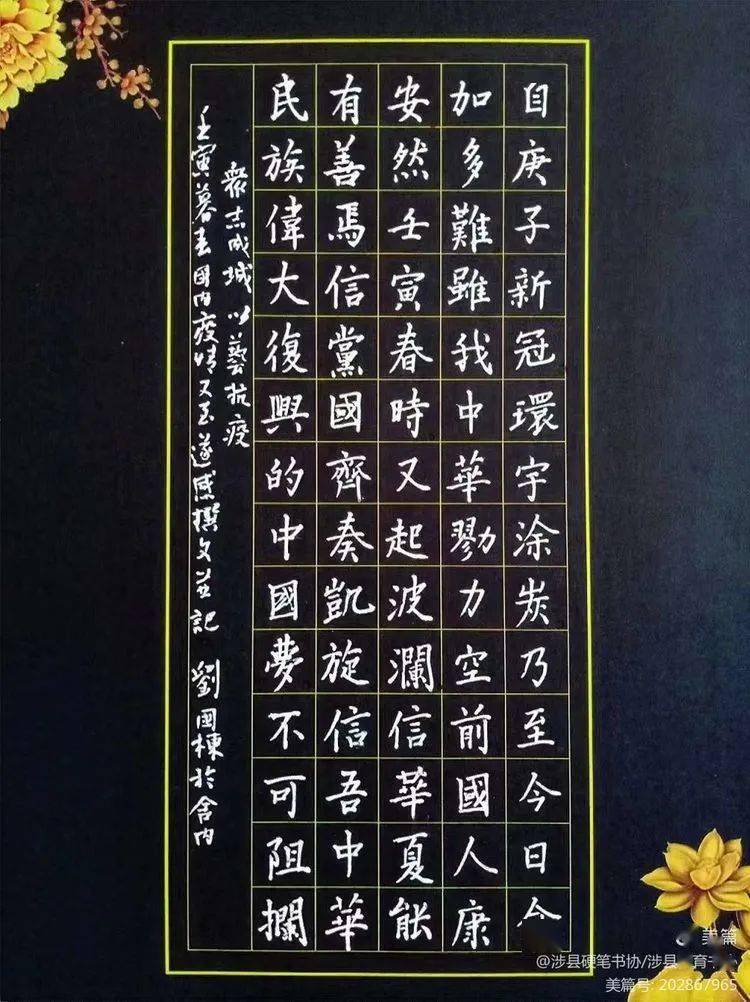 自庚子新冠環宇涂炭乃至今日今
加多難雖我中華勠力空前國人康
安然壬寅春時又起波瀾信華夏能
有善焉信黨國齊奏凱旋信吾中華
民族偉大復興的中國夢不可阻攔
衆志成城以藝抗疫
壬寅暮春國内疫情又至遂感撰文並記 劉國棟於舍内
美篇
@涉县硬笔书协/涉县 育
美篇号: 202867965